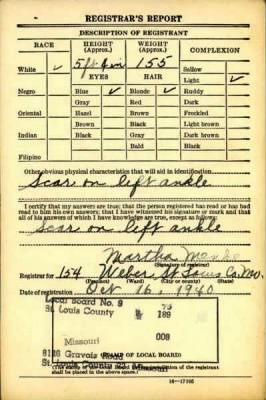 REGISTRAR'S REPORT
DESCRIPTION OF REGISTRANT
RACE HEIGHT (Approx.) WEIGHT (Approx.) COMPLEXION
5 ft 155
White ✓ EYES HAIR Sallow
Light ✓
Negro Blue ✓ Blonde ✓ Ruddy
Gray Red Dark
Oriental Hazel Brown Freckled
Brown Black Light brown
Indian Black Gray Dark brown
Bald Black
Filipino
Other obvious physical characteristics that will aid in identification
Scar on left ankle
I certify that my answers are true; that the person registered has read or has had
read to him his own answers; that I have witnessed his signature or mark and that
all of his answers of which I have knowledge are true, except as follows:
Scar on left ankle
Martha
(Signature of registrar)
Registrar for 154 Weber St Louis Co. Mo.
(Precinct) (Ward) (City or county) (State)
Date of registration Oct 16, 1940
Local Board No. 9
St. Louis County 189
009
Missouri
Gravois Road
(STAMP OF LOCAL BOARD)
St. Louis County Missouri
(The stamp of the Local Board of the registrant
shall be placed in the above space.)